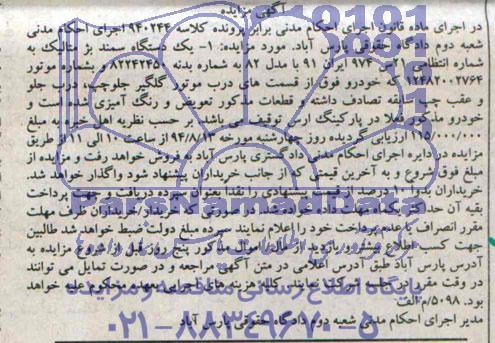 آگهی مزایده
در اجرای ماده قانون اجرای احکام مدنی برابر پرونده کلاسه ۹۴۰۲۴۴ اجرای احکام مدنی
شعبه دوم دادگاه حقوقی پارس آباد. مورد مزایده: ۱- یک دستگاه سمند بژ متالیک به
شماره انتظامی ۲۱ص۹۷۴ ایران ۹۱ با مدل ۸۲ به شماره بدنه ۸۲۲۴۲۴۵۰ و بشماره موتور
۱۲۴۸۲۰۰۲۷۶۴ که خودرو فوق از قسمت های درب موتور گلگیر جلوچپ، درب جلو
و عقب چپ سابقه تصادف داشته و قطعات مذکور تعویض و رنگ آمیزی شده است و
خودرو مذکور فعلا در پارکینگ ارس توقیف می باشد. بر حسب نظریه اهل خبره به مبلغ
ارزیابی گردیده روز چهارشنبه مورخه ۹۴/۸/ از ساعت ۱۰ الی ۱۱ از طریق
مزایده در دایره اجرای احکام مدنی دادگستری پارس آباد به فروش خواهد رفت و مزایده از
مبلغ فوق شروع و به آخرین قیمتی که از جانب خریداران پیشنهاد شود واگذار خواهد شد.
خریداران بدوا ۱۰ درصد از قیمت پیشنهادی را نقدا بعنوان سپرده دریافت و جهت پرداخت
بقیه آن حداکثر یکماه مهلت داده خواهد شد. در صورتی که خریدار/خریداران ظرف مهلت
مقرر انصراف یا عدم پرداخت خود را اعلام نمایند سپرده مبلغ دولت ضبط خواهد شد طالبین
جهت کسب اطلاع بیشتر و بازدید از مال/اموال مذکور پنج روز قبل از شروع مزایده به
آدرس پارس آباد طبق آدرس اعلامی در متن آگهی مراجعه و در صورت تمایل می توانند
در وقت مقرر در جلسه شرکت نمایند. کلیه هزینه های اجرایی بعهده محکوم علیه خواهد
بود. ۵۰۹۸/م الف
مدیر اجرای احکام مدنی شعبه دوم دادگاه حقوقی پارس آباد
ParsNamadData
پایگاه اطلاع رسانی مناقصه و مزایده
۰۲۱-۸۸۳۴۹۶۷۰-۵